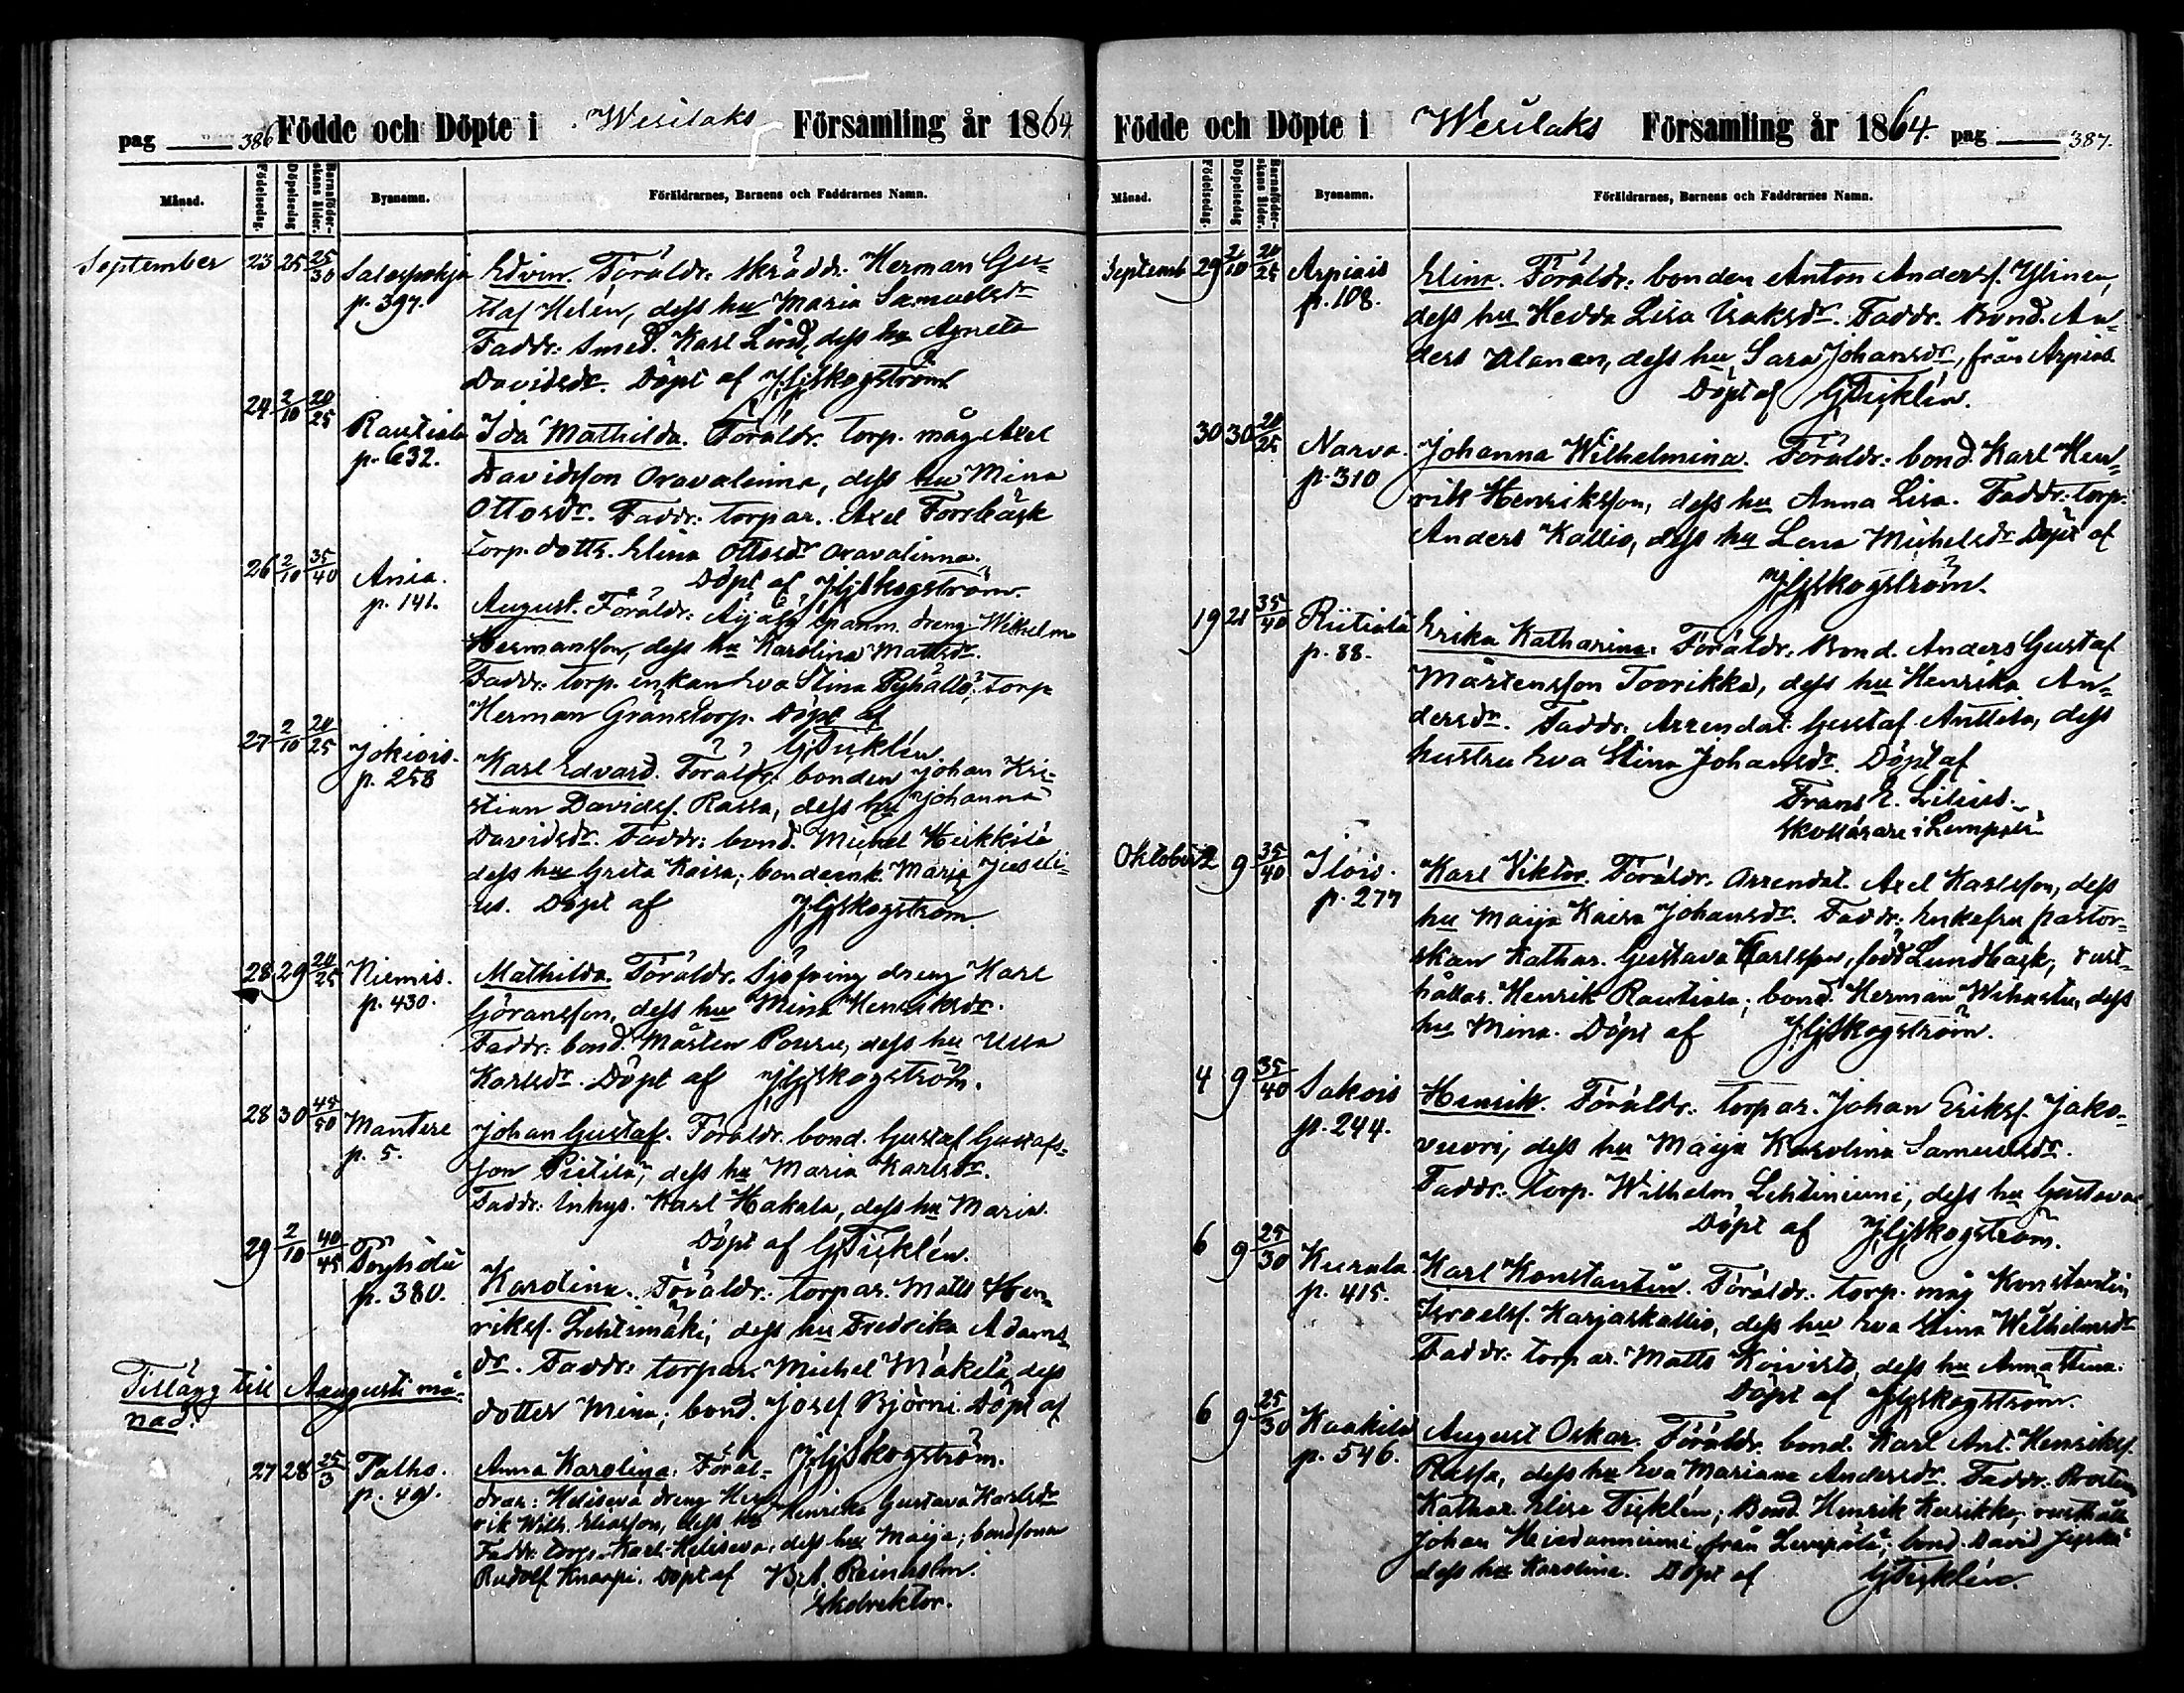 pag 386 Födde och Döpte i Wesilaks Församling år 1864.
Månad. Födelsedag. Döpelsedag Barnaföderskans ålder. Bysnamn. Föräldrarnes, Barnens och Faddrarnes Namn.
September 23 25 25/30 Salospohja Edvin. Föräldr: Skräddr. Herman Gu-
p. 397. staf Helén, dess hu Maria Samuelsdr
Faddr: Smed. Karl Lind, dess hu Agneta
Davidsdr. Döpt af J.G.Skogström
24 2/10 20/25 Rautiala Ida Mathilda. Föräldr. torp. måg Axel
p. 632. Davidsson Oravalinna, dess hu Mina
Ottosdr. Faddr: torpar. Axel Forsbäck
torp. dottr. Elina Ottosdr Oravalinna.
Döpt af J.G.Skogström.
26 2/10 35/40 Ania. August. Föräldr: dreng Wilhelm
p. 141. Hermansson, dess hu Karolina Mattsdr.
Faddr: torp. enkan Eva Stina Pyhältö, torp
Herman Gränstorp. Döpt af
G.Ticklén
27 2/10 20/25 Jokiois. Karl Edvard. Föräldr: bonden Johan Kri-
p. 258 stian Davidss. Rassa, dess hu Johanna
Davidsdr. Faddr: bond. Michel Heikkilä
dess hu Greta Kaisa; bondeenk. Maria Juseli-
us. Döpt af J.G.Skogström
28 29 20/25 Niemis. Mathilda. Föräldr. dreng Karl
p. 430. Göransson, dess hu Mina Henriksdr.
Faddr. bond. Mårten Pouru, dess hu Ulla
Karlsdr. Döpt af J.G.Skogström.
28 30 45/50 Mantere Johan Gustaf. Föräldr. bond. Gustaf Gustafs-
p. 5. son Pietilä, dess hu Maria Karlsdr.
Faddr: Inhys. Karl Hakala, dess hu Maria.
Döpt af G.Ticklén.
29 2/10 40/45 Karolina. Föräldr: torpar. Matts Hen-
p. 380. rikss. Lehtimäki, dess hu Fredrika Adams-
dr. Faddr: torpar. Michel Mäkelä, dess
dotter Mina; bond. Josef Björni. Döpt af
J.G.Skogström.
Tillägg till Augusti må-
nad.
27 28 25/3 Palho. Anna Karolina. Föräl-
p. 491. drar: Heliseva dreng Hen-
rik Wilh. Eliasson, dess hu Henrika Gustava Karlsdr
Faddr. torp. Karl Heliseva, dess hu Maija; bondsonen
Rudolf Knaapi. Döpt af Brt. Reinholm.
Skolrektor.
Födde och Döpte i Wesilaks Församling år 1864. pag 387.
Månad. Födelsedag. Döpelsedag Barnaföderskans ålder. Bysnamn. Föräldrarnes, Barnens och Faddrarnes Namn.
Septemb 29 2/10 20/25 Arpiais Elina. Föräldr: bonden Anton Anderss. Ylinen,
p. 108. dess hu Hedda Lisa Isaksdr. Faddr. Bond. An-
ders Alanen, dess hu Sara Johansdr, från Arpiais
Döpt af G.Ticklén.
30 30 20/25 Narva. Johanna Wilhelmina. Föräldr: bond Karl Hen-
p. 310 rik Henriksson, dess hu Anna Lisa. Faddr: torp.
Anders Kallio, dess hu Lena Michelsdr Döpt af
J.G.Skogström.
19 21 35/40 Riitiala Erika Katharina. Föräldr. Bond. Anders Gustaf
p. 88. Mårtensson Toorikka, dess hu Henrika An-
dersdr. Faddr. Arrendat. Gustaf Anttila, dess
hustru Eva Stina Johansdr. Döpt af
Frans E. Lilius.
Skollärare i Lempälä
Oktober 2 9 35/40 Ilois. Karl Viktor. Föräldr. Arrendat. Axel Karlsson, dess
p. 277 hu Maija Kaisa Johansdr. Faddr: Enkefru pastor-
skan Kathar. Gustava Karlsson, född Lundbäck; rust-
hållar. Henrik Rautiala; bond. Herman Wihastu, dess
hu Mina. Döpt af J.G.Skogström.
4 9 35/40 Sakois Henrik. Föräldr. torpar. Johan Erikss. Jako-
p. 244. vuori, dess hu Maija Karolina Samuelsdr.
Faddr. torp. Wilhelm Lehtiniemi, dess hu Gustava
Döpt af J.G.Skogström.
6 9 25/30 Kurala Karl Konstantin. Föräldr. torp. måg Konstantin
p. 415. Israelss. Karjaskallio, dess hu Eva Stina Wilhelmsdr
Faddr: torpar. Matts Koivisto, dess hu Anna Stina.
Döpt af J.G.Skogström.
6 9 25/30 Kaakila August Oskar. Föräldr. bond. Karl Ant. Henrikss.
p. 546. Rassa, dess hu Eva Mariana Andersdr. Faddr.
Kathar. Elise Ticklén; Bond. Henrik Kurikka; rusthåll
Johan från Lempälä; bond. David
dess hu Karolina. Döpt af G.Ticklén.